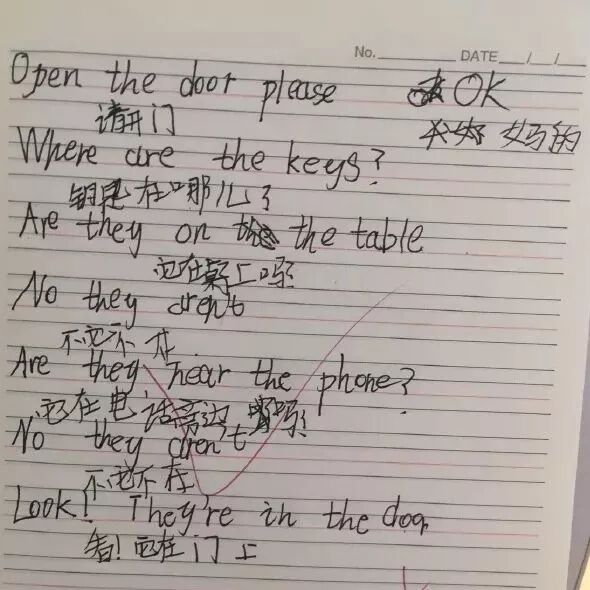 No. DATE / /
Open the door please OK
请开门 妈的
Where are the keys?
钥匙在哪儿？
Are they on the the table
它在桌上吗?
No they aren't
不它不在
Are they near the phone?
它在电话旁边吗?
No they aren't
不它不在
Look! They're in the door
看!它在门上